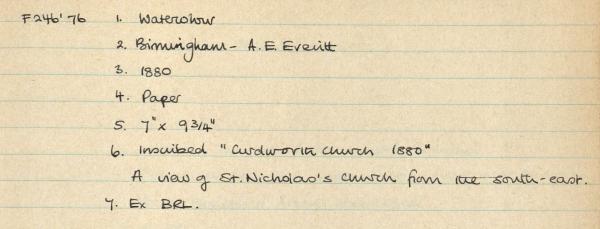 F246'76 1. Watercolour
2. Birmingham - A.E. Everitt
3. 1880
4. Paper
5. 7" x 9 3/4"
6. Inscribed "Curdworth church 1880"
A view of St. Nicholas's church from the south-east.
7. Ex BRL.